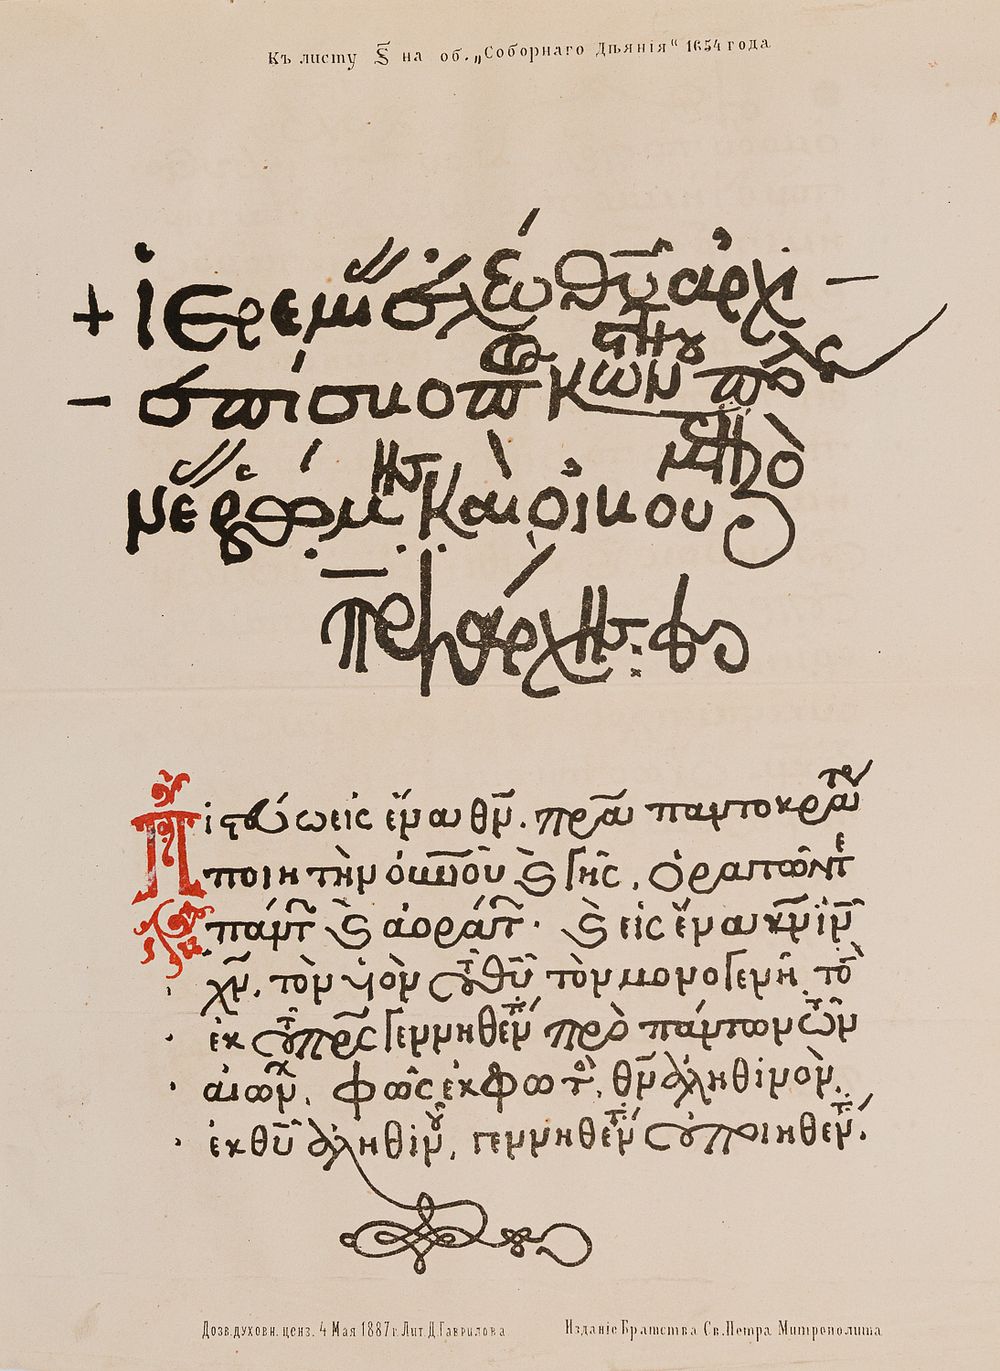 Къ листу Ѕ҃ на об. „Соборнаго Дѣянія“ 1654 года
+ ἱερεμίας ἐλέω θῡ ἀρχι –
– επίσκοπος κωνσταντινου πόλεως
νέας ῥώμης καὶ οἰκουμενικὸς
πατριάρχης :
Πιστεύω εἰς ἕνα θν̄. πρ̄α παντοκράτορα
ποιητὴν οὐνοῦ ϗ γῆς, ὁρατῶν τε
πάντων ϗ ἀοράτων· ϗ εἰς ἕνα κν̄ ιν̄
χν̄, τὸν υἱὸν τοῦ θῡ τὸν μονογενῆ, τὸν
ἐκ τοῦ πρ̄ς γεννηθέντα πρὸ πάντων τῶν
αἰώνων, φῶς ἐκ φωτός, θν̄ ἀληθινὸν,
ἐκ θῡ ἀληθινοῦ, γεννηθέντα οὐ ποιηθέντα.
Дозв. духовн. ценз. 4 Мая 1887 г. Лит. Д. Гаврилова Изданіе Братства Св. Петра Митрополита